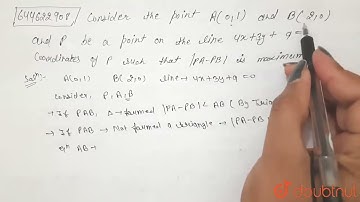 644622908 Consider the point A(0,1) and B(2,0)
and P be a point on the line 4x+3y+9=
Coordinates of P such that |PA-PB| is maximum
Soln: A(0,1) B(2,0) line → 4x+3y+9=0
Consider, P, A, B
→ If PAB, Δ → formed |PA-PB| < AB (By Tri
→ If PAB → Not formed a triangle → |PA-PB
eqn AB →
doubtnut